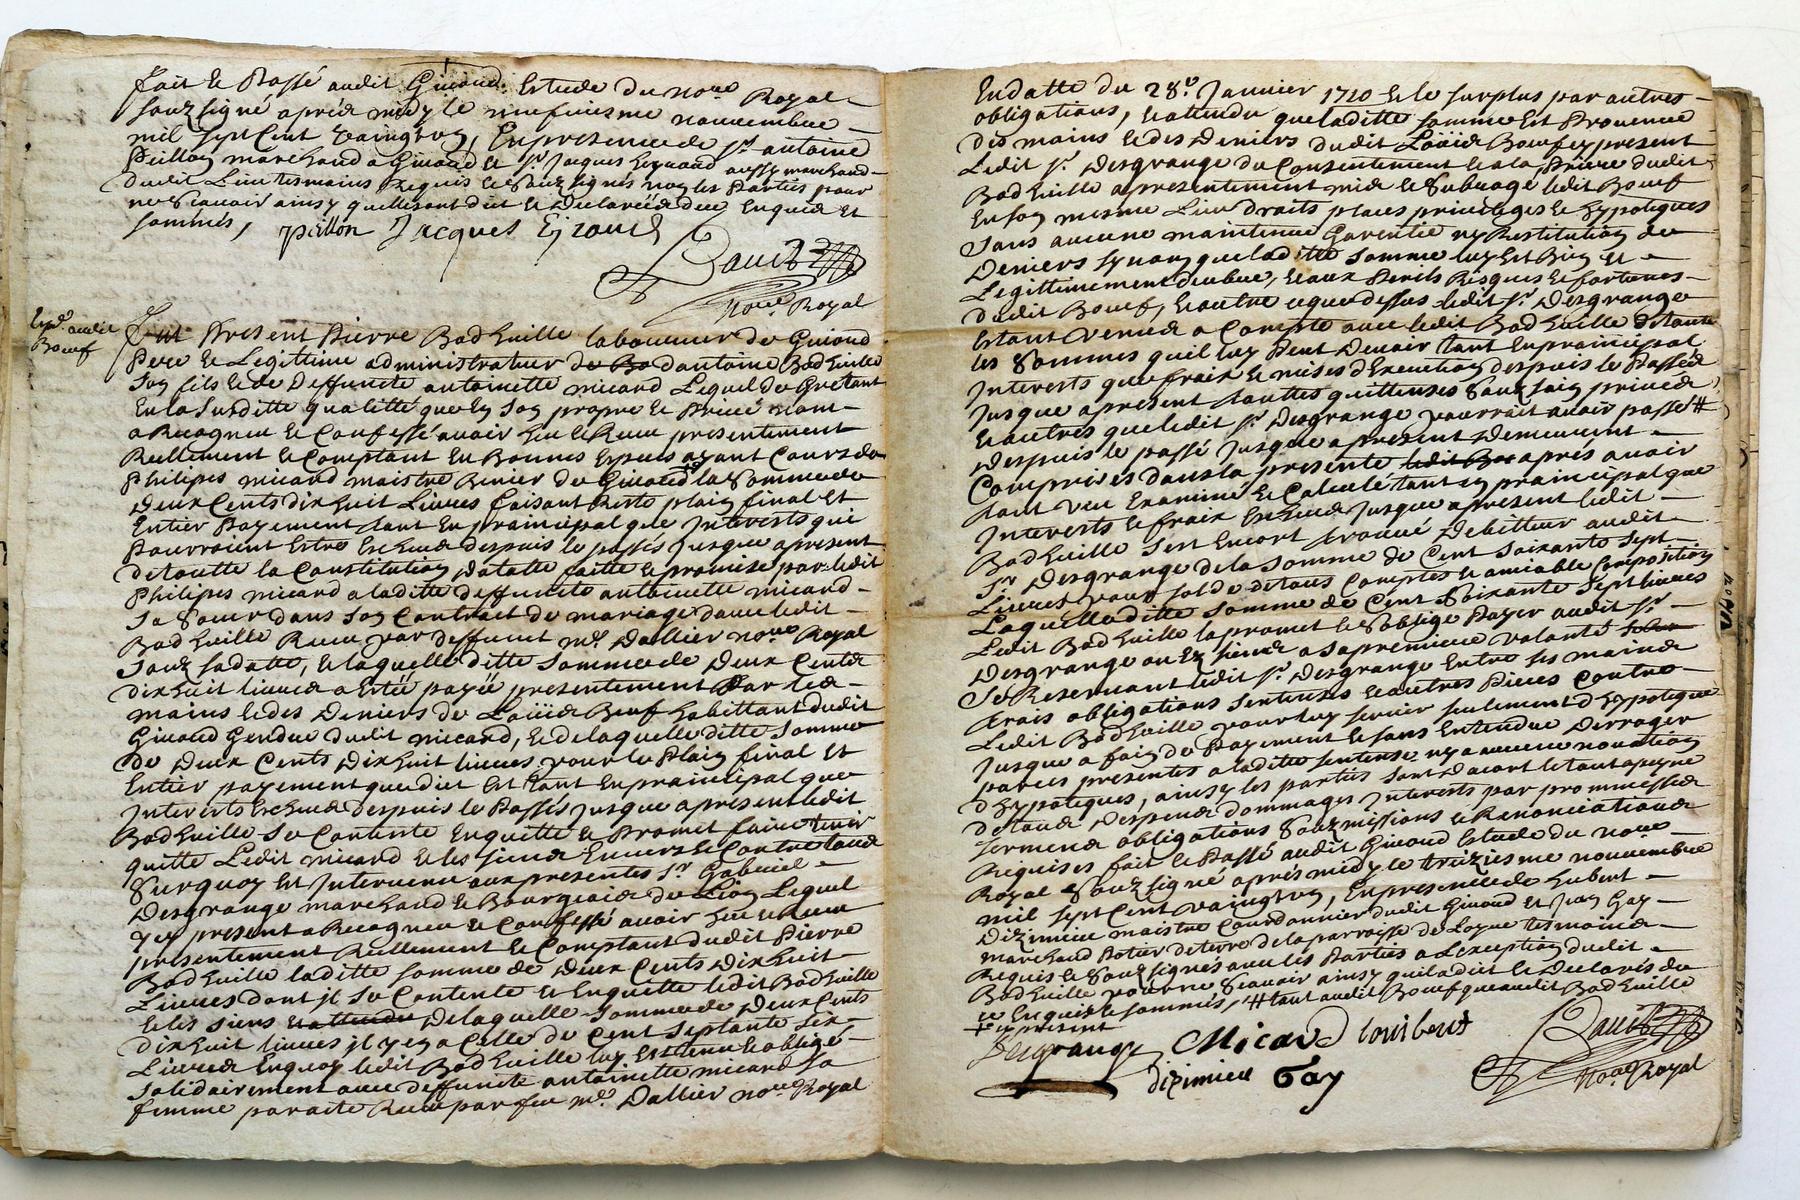 fait & Passé audit Givord Estude du no.re Royal
souzsigné aprés midy le neufuiesme nouvembre
mil sept Cent vaingtroy, En presence de s.r antoine
Peillon marchand a Givord & s.r Jacques Eyraud aussy marchand
dudit Lieu tesmoins Requis & Souzsignés non les Parties pour
ne Sçauoir ainsy quelles ont dit & declaréés deu Enquis et
sommés,
peillon Jacques Eyraud
no.re Royal
Exp.é audit
Bouef
fut Present Pierre Badhuille laboureur de Givord
Pere & Legittime administrateur de Bad dantoine Badhuille
son fils & de deffuncte antoinette micard Lequel de Gretant
En la Susditte qualitté que En son propre & Privé nom
a Recogneu & Confessé auoir heu & Receu presentement
Reellement & Comptant En Bonnes Especes ayant Cours de
Philipes micard maistre du Givord la Somme de
deux Cents dix huit Liures faisant Reste plain final et
Entier Payement tant En prainsipal que Interests qui
Pourroient Estre Escheus despuis le passés Jusque apresent
de toutte la Constitution dotalle faitte & promise par ledit
Philipes micard a laditte deffuncte antoinette micard
sa Sœur dans son Contract de mariage dauec ledit
Badhuille Receu par deffunct m.e Dallier no.re Royal
Souz sa datte, & laquelle ditte Somme de deux Cents
dix huit liures a Esté payéé presentement Par les
mains & des Deniers de Loüis Bouef habittant dudit
Givord Gendre dudit micard, & de laquelle ditte Somme
de deux Cents dix huit liures pour le Plain final et
Entier payement que dit Est tant En prainsipal que
Interests Escheus despuis le Passés Jusque apresent ledit
Badhuille Se Contente Enquitte & Promet faire tenir
quitte Ledit micard & les siens Enuers & Contre tous
Surquoy Est Intervenu aux presentes s.r Gabriel
Desgrange marchand & Bourgeois de Lion Lequel
y ey present a Recogneu & Confessé auoir heu & Receu
presentement Reellement & Comptant dudit Pierre
Badhuille laditte somme de deux Cents dix huit
Liures dont il Se Contente & Enquitte ledit Badhuille
& les siens & attendu delaquelle Somme de deux Cents
dix huit liures il y en a Celle de Cent Septante six
Liures Enquoy ledit Badhuille luy est tenu & obligé
solidairement auec deffuncte antoinette micard sa
femme par acte Receu par feu m.e Dallier no.re Royal
En datte du 28.e Januier 1710 & le surplus par autres
obligations, & attendu que laditte somme Est Prouenue
des mains & des Deniers dudit Loüis Bouef ey present
Ledit s.r Desgrange du Consentement & a la Priere dudit
Badhuille a presentement mis & Subrogé ledit Bouef
En son mesme Lieu droits places priuileges & hypotèques
sans aucune maintenue Garentie ny Restitution de
Deniers synon que laditte Somme luy Est Bien &
Legittimement deubue, & aux Perils Risques & fortunes
dudit Bouef, & outre ce que dessus ledit s.r Desgrange
Estant venus a Compte auec ledit Badhuille de toutte
les Sommes quil luy Peut Deuoir tant En prainsipal
Interests que fraix & mises d'Execution despuis le Passés
Jusque apresent touttes quittenses Souz sain priués
& autres que ledit s.r Desgrange pourroit auoir passé #
despuis le passé Jusque apresent demeurent
Comprises dans la presente ledit Bad aprés auoir
tout veu Examiné & Calculé tant En prainsipal que
Interests & fraix Escheus Jusque apresent ledit
Badhuille Sest Encort trouué Debitteur audit
s.r Desgrange de la Somme de Cent Soixante Sept
Liures pour solde de tous Comptes & amiable Composition
Laquelle ditte Somme de Cent Soixante Sept liures
Ledit Badhuille la promet & Soblige Payer audit s.r
Desgrange ou Ez siens a sa premiere volonté
Se Reseruant ledit s.r Desgrange Entre ses mains
trois obligations sentenses & autres Pieces Contre
Ledit Badhuille pour luy seruir seulement d'hypotèque
Jusque a fain de Payement & sans Entendre Derroger
par ces presentes a laditte sentense ny aucune nouation
d'hypotèques, ainsy les parties sont d'acort & tout apeyne
de tous despens dommages Interests par prommesses
sermens obligations Souzmissions & Renonciations
Requises fait & Passé audit Givord Estude du no.re
Royal Souzsigné aprés midy le treiziesme nouuembre
mil sept Cent vaingtroy, En presence de hubert
Dizimieu maistre Cordonnier dudit Givord et Jean Gay
marchand Potier de terre de la parroisse de Loyre tesmoins
Requis & Souzsignés auec les Parties a L'exeption dudit
Badhuille pour ne Sçauoir ainsy quil a dit & Declarés de
ce Enquis & sommés, # tant audit Bouef que audit Badhuille
+ ey present
Desgrange Micard Louis beuf
dizimieu Gay
no.re Royal